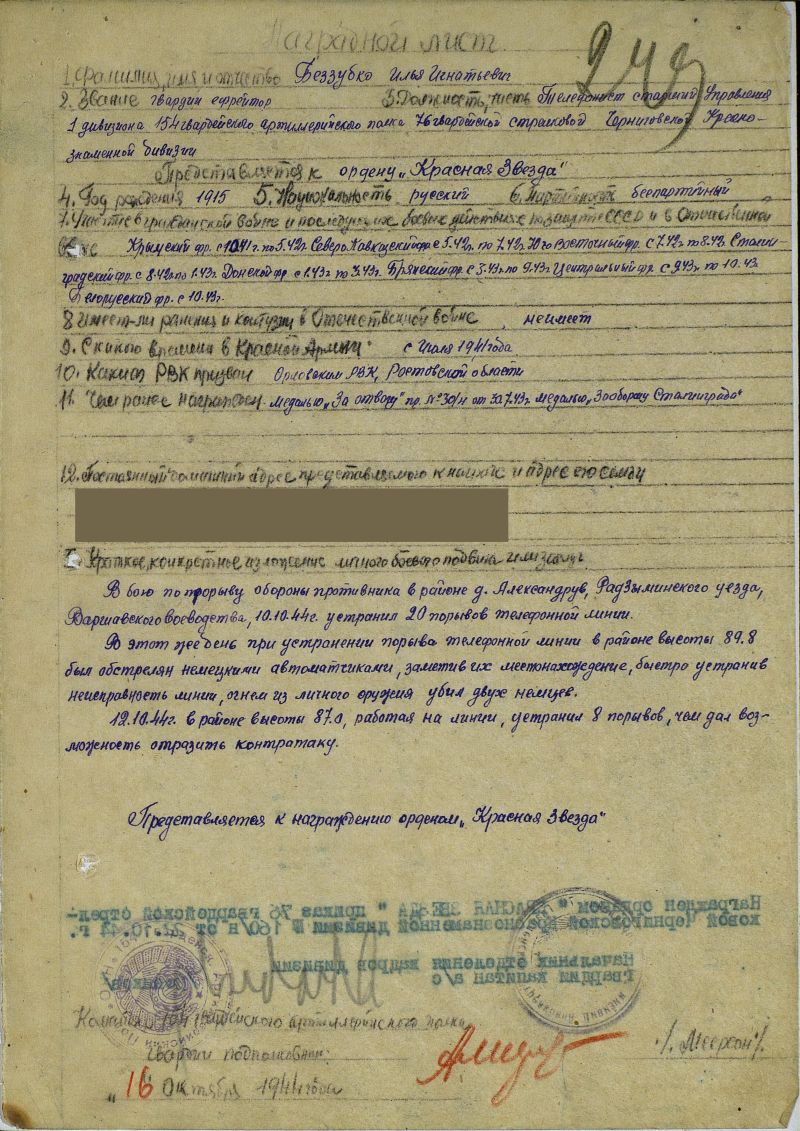 Наградной лист
243
1. Фамилия, имя и отчество Беззубко Илья Игнатьевич
2. Звание гвардии ефрейтор 3. Должность, часть Телефонист старший Управления
1 дивизиона 154 гвардейского артиллерийского полка 76 гвардейской стрелковой Черниговской Красно-
знаменной дивизии
Представляется к ордену „Красная Звезда"
4. Год рождения 1915 5. Национальность русский 6. Партийность беспартийный
7. Участие в гражданской войне и последующих боевых действиях по защите СССР и в Отечественной
войне Крымский фр. с 10.41г. по 5.42г. Северо Кавказский фр. с 5.42г. по 7.42г. Юго Восточный фр. с 7.42г. по 8.42г. Сталин-
градский фр. с 8.42г. по 1.43г. Донской фр. с 1.43г. по 3.43г. Брянский фр. с 3.43г. по 9.43г. Центральный фр. с 9.43г. по 10.43г.
Белорусский фр. с 10.43г.
8 имеет-ли ранения и контузии в Отечественной войне, не имеет
9. С какого времени в Красной Армии с Июля 1941 года
10. Каким РВК призван Орловским РВК, Ростовской области
11. Чем ранее награжден медалью „За отвагу" пр. №30/н от 30.7.43г. медалью „За оборону Сталинграда"
12. Постоянный домашний адрес представляемого к награде и адрес его семьи
Краткое, конкретное изложение личного боевого подвига или заслуг
В бою по прорыву обороны противника в районе д. Александрув, Радзыминского уезда,
Варшавского воеводства, 10.10.44г. устранил 20 порывов телефонной линии.
В этот же день при устранении порыва телефонной линии в районе высоты 89.8
был обстрелян немецкими автоматчиками, заметив их местонахождение, быстро устранив
неисправность линии, огнем из личного оружия убил двух немцев.
12.10.44г. в районе высоты 87.0, работая на линии, устранил 8 порывов, чем дал воз-
можность отразить контратаку.
Представляется к награждению орденом „Красная Звезда"
Награжден орденом " КРАСНАЯ ЗВЕЗДА " приказ 76 гвардейской стрел-
ковой Черниговской Краснознаменной дивизии № 160/н от 22.10.44 г.
Начальник отделения кадров дивизии
гвардии капитан а/с
Командир 154 гвардейского артиллерийского полка
Гвардии подполковник
/. Меерсон/.
„16 Октября 1944 года